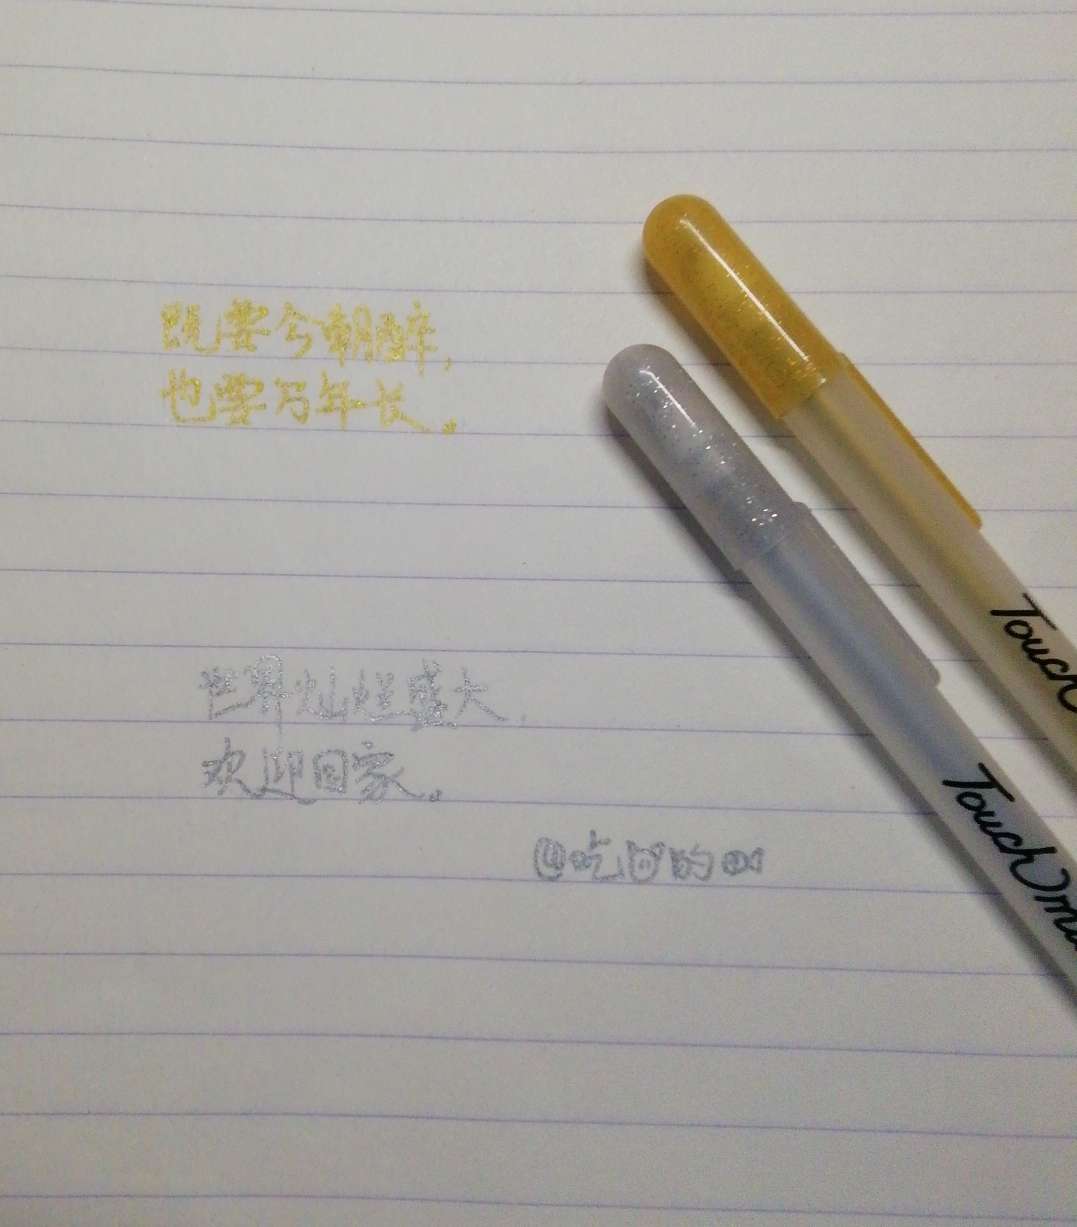 既要今朝醉,
也要万年长。
世界灿烂盛大,
欢迎回家。
@吃 的
Touch
Touch